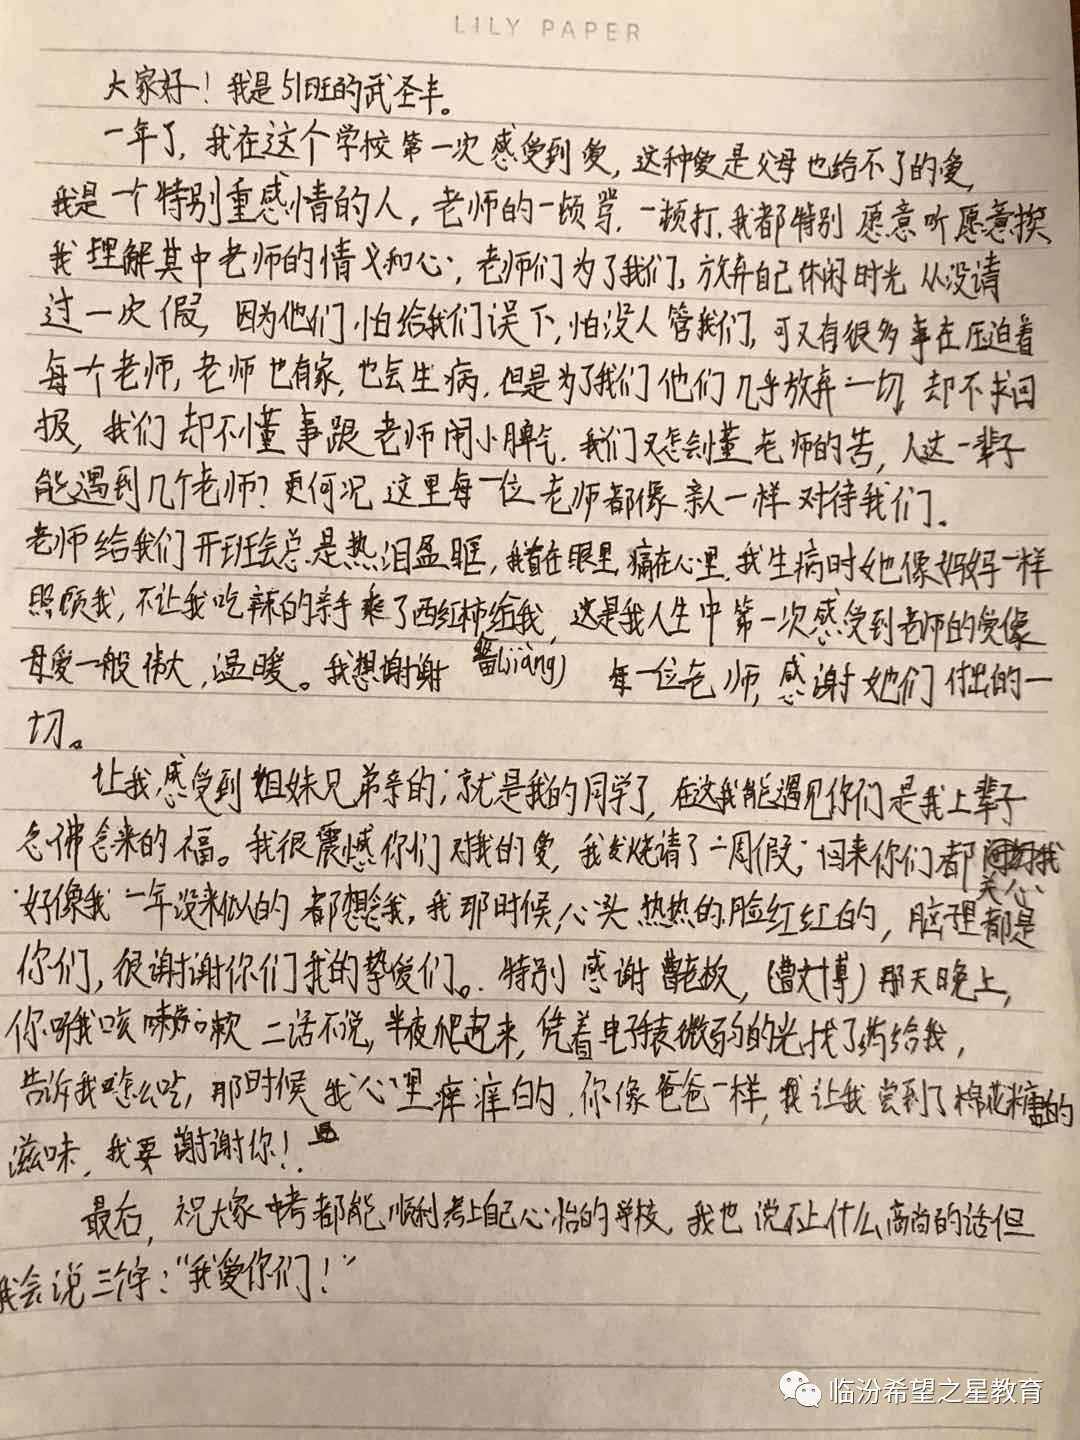 LILY PAPER
大家好！我是51班的武圣丰。
一年了，我在这个学校第一次感受到爱，这种爱是父母也给不了的爱，
我是一个特别重感情的人，老师的一顿骂，一顿打，我都特别愿意听愿意挨
我理解其中老师的情义和心，老师们为了我们，放弃自己休闲时光从没请
过一次假，因为他们怕给我们误下，怕没人管我们，可又有很多事在压迫着
每个老师，老师也有家，也会生病，但是为了我们他们几乎放弃一切，却不求回
报，我们却不懂事跟老师闹小脾气，我们又怎会懂老师的苦，人这一辈子
能遇到几个老师？更何况这里每一位老师都像亲人一样对待我们。
老师给我们开班会总是热泪盈眶，我看在眼里，痛在心里，我生病时她像妈妈一样
照顾我，不让我吃辣的亲手乘了西红柿给我，这是我人生中第一次感受到老师的爱像
母爱一般伟大，温暖。我想谢谢(jiàng)每一位老师，感谢她们付出的一
切。
让我感受到姐妹兄弟亲的，就是我的同学了，在这我能遇见你们是我上辈子
念佛念来的福。我很震憾你们对我的爱，我发烧请了一周假，回来你们都关心我
好像我一年没来似的都想念我，我那时候心头热热的脸红红的，脑理都是
你们，很谢谢你们我的挚友们。特别感谢曹老板，(曹文博)那天晚上，
你听我咳嗽二话不说，半夜爬起来，凭着电子表微弱的光找了药给我，
告诉我怎么吃，那时候我心里痒痒的，你像爸爸一样，让我尝到了棉花糖的
滋味，我要谢谢你！
最后，祝大家中考都能顺利考上自己心怡的学校，我也说不上什么高尚的话但
我会说三个字：“我爱你们！”
临汾希望之星教育